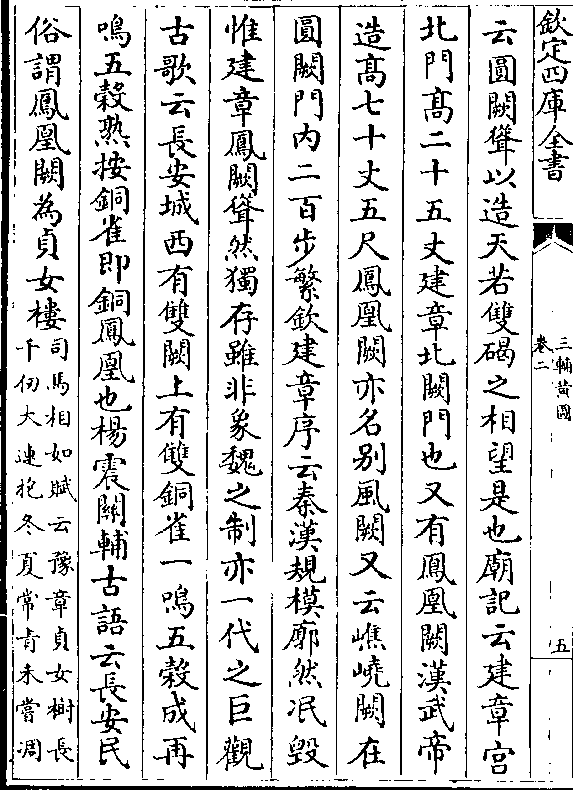 欽定四庫全書
三輔黃圖
卷二
五
云圓闕聳以造天若雙碣之相望是也廟記云建章宮
北門髙二十五丈建章北闕門也又有鳳凰闕漢武帝
造髙七十丈五尺鳳凰闕亦名别風闕又云嶕嶢闕在
圓闕門内二百步繁欽建章序云秦漢規模廓然泯毀
惟建章鳳闕聳然獨存雖非象魏之制亦一代之巨觀
古歌云長安城西有雙闕上有雙銅雀一鳴五榖成再
鳴五榖熟按銅雀即銅鳳凰也楊震關輔古語云長安民
俗謂鳳凰闕為貞女樓司馬相如賦云豫章貞女樹長
千仞大連抱冬夏常青未嘗凋